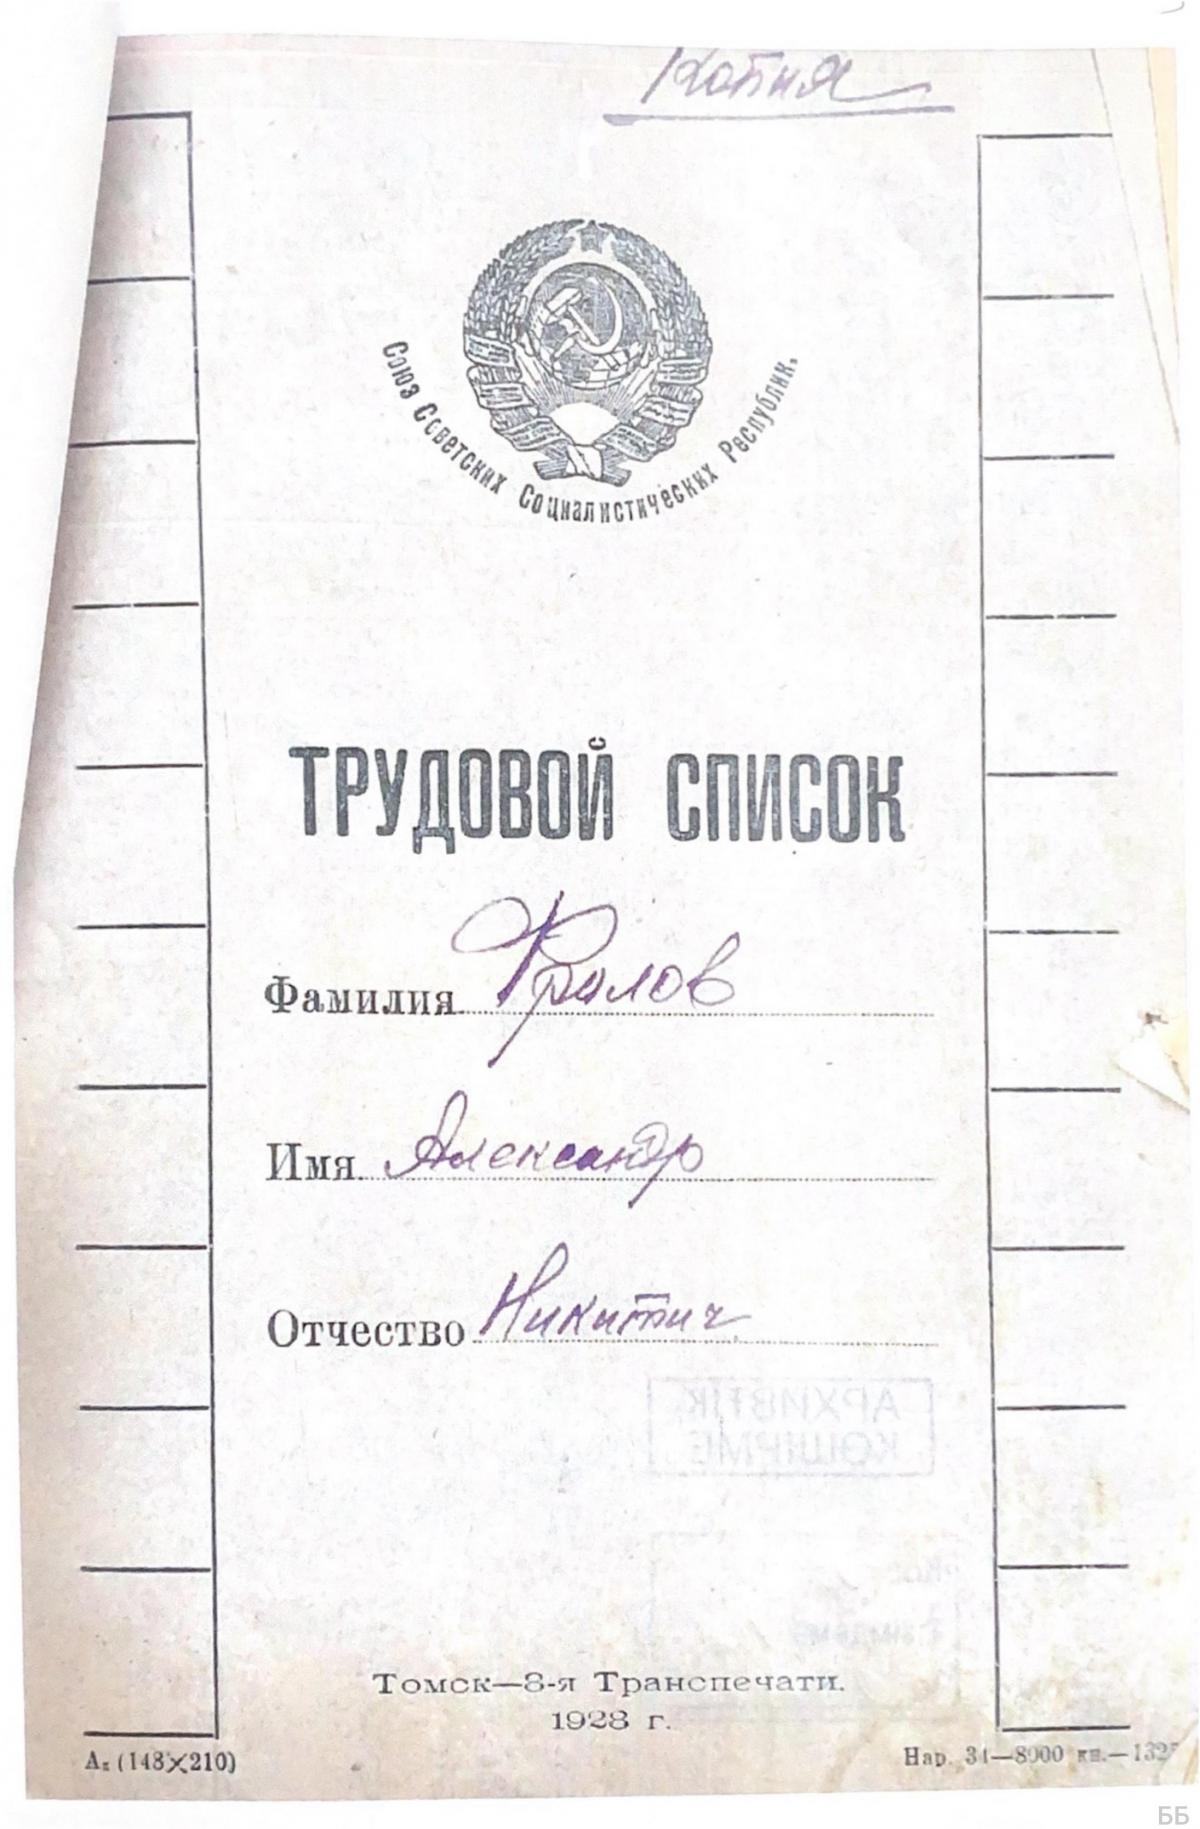 Копия
Союз Советских Социалистических Республик.
ТРУДОВОЙ СПИСОК
Фамилия Фролов
Имя Александр
Отчество Никитич
АРХИВТІК
КӨШІРМЕ
Томск—8-я Транспечати.
1928 г.
(148×210)
Нар. 34—8000 кн.—132
ББ